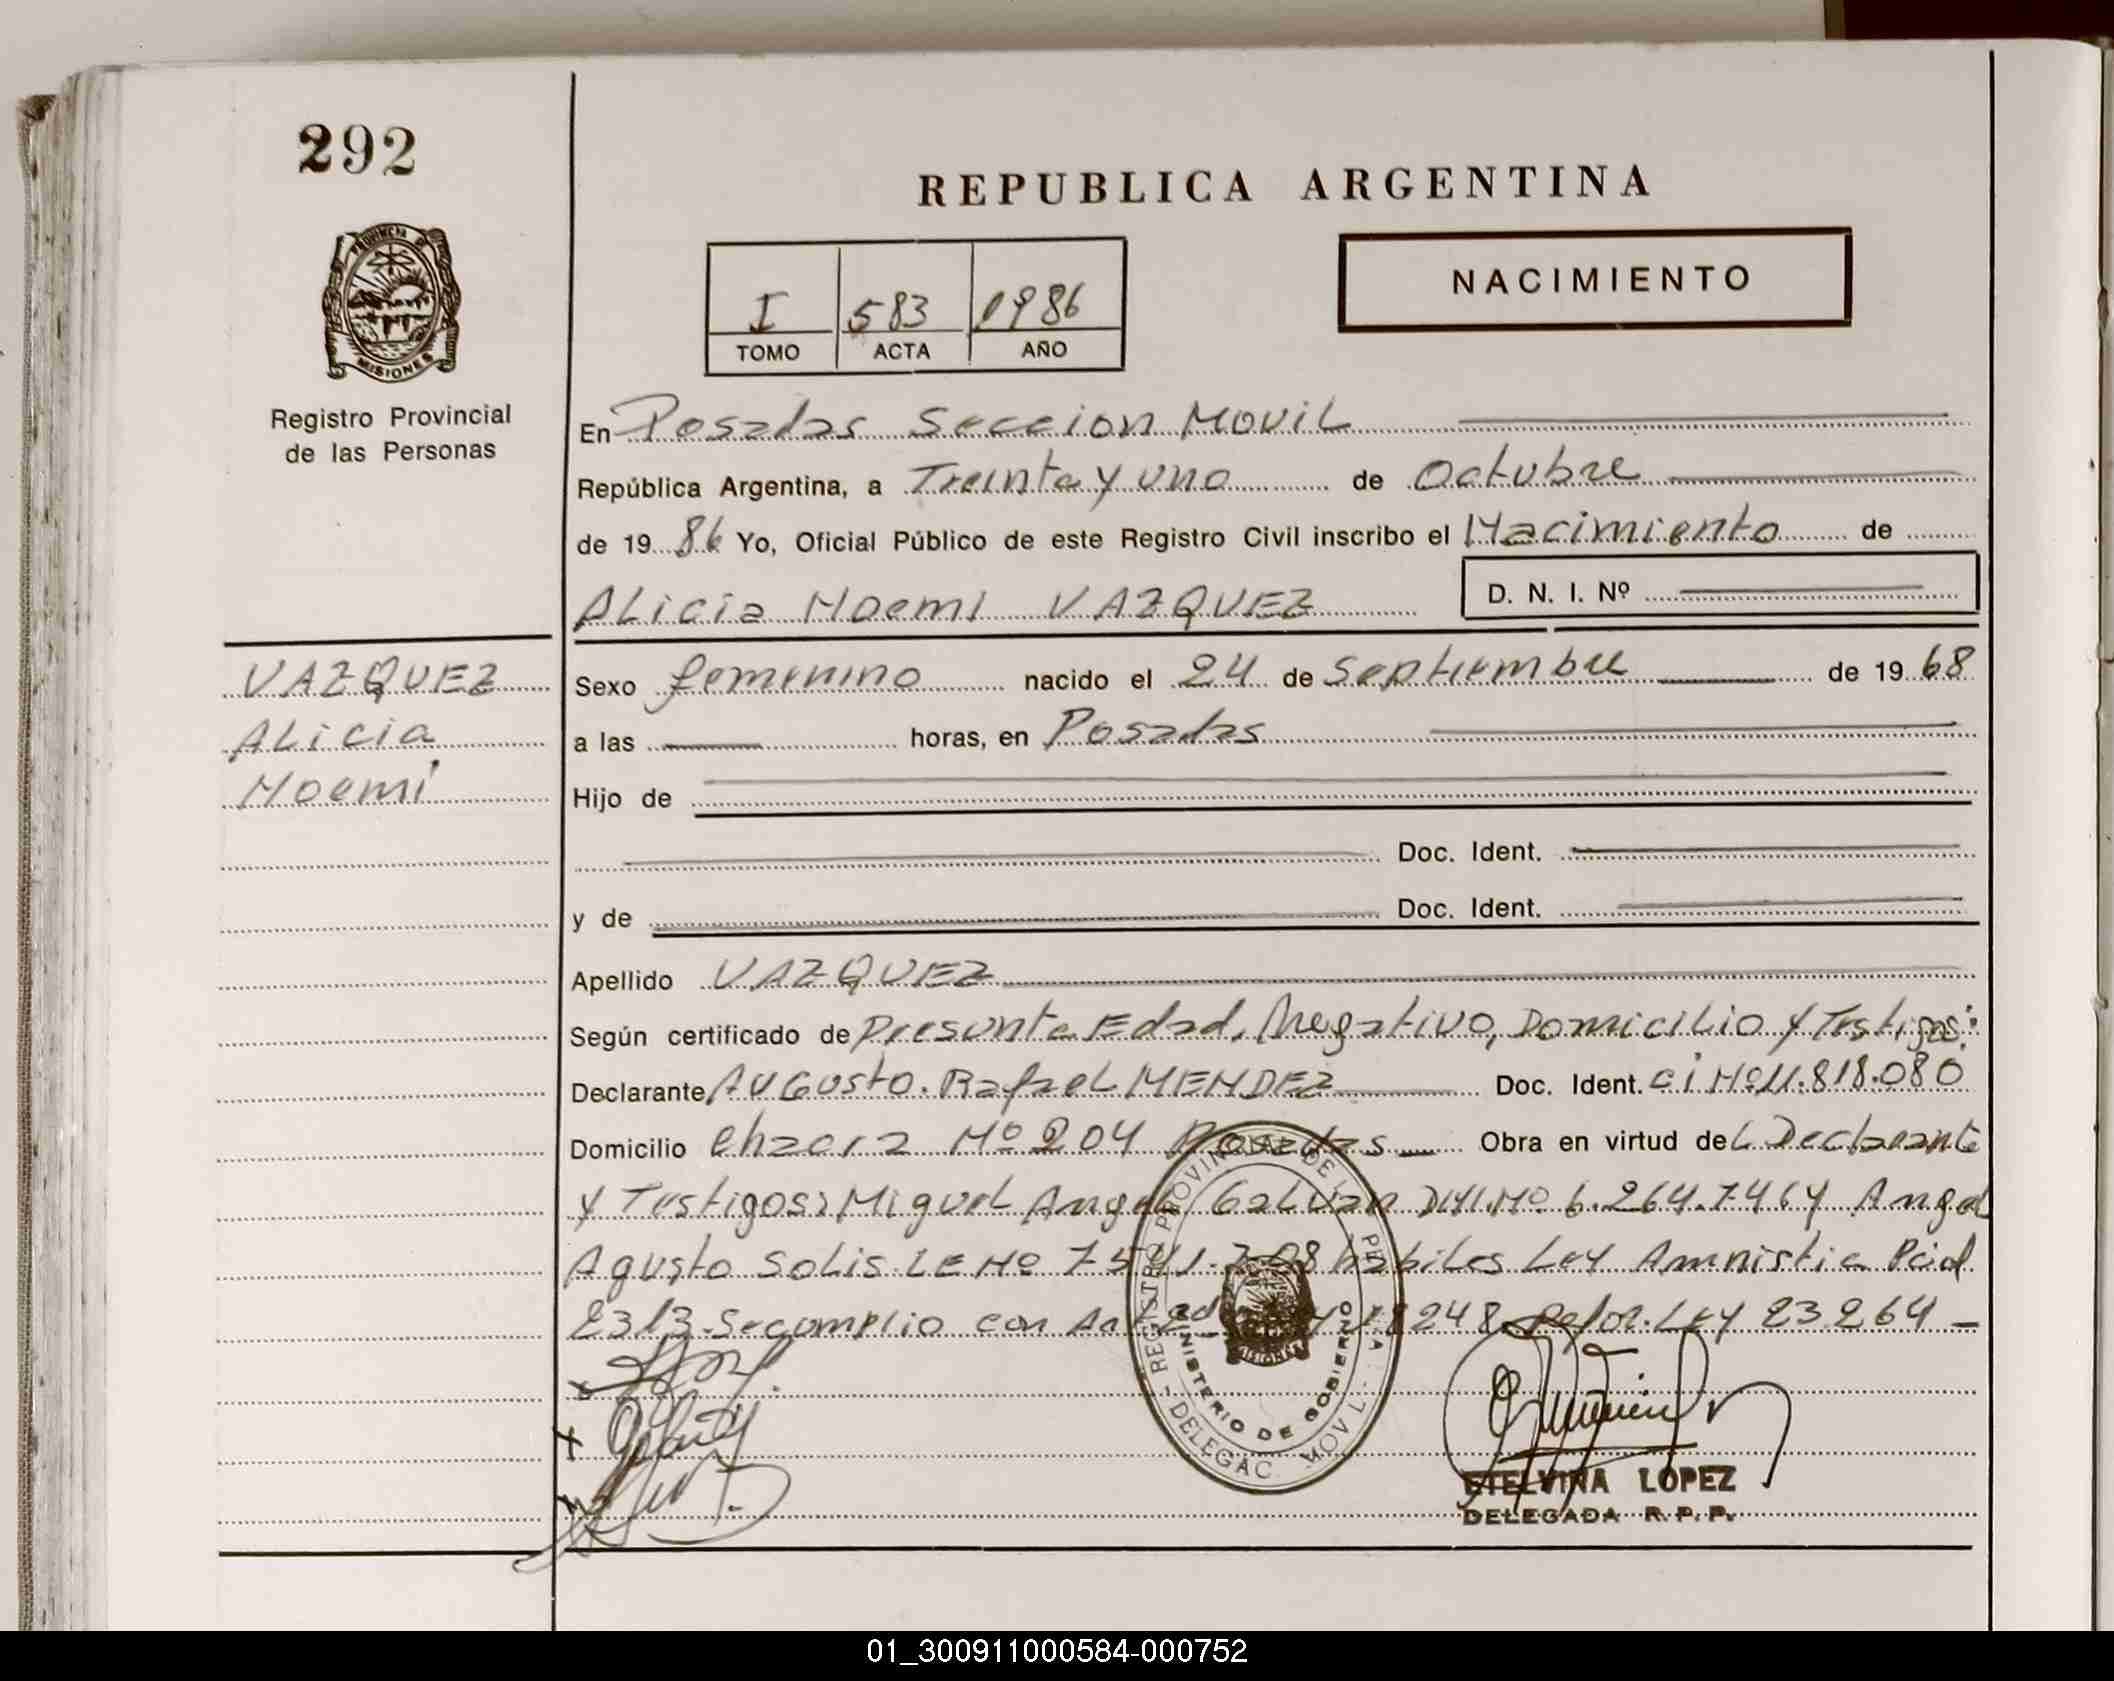 292
REPUBLICA ARGENTINA
PROVINCIA DE MISIONES
I 583 1986
TOMO ACTA AÑO
NACIMIENTO
Registro Provincial
de las Personas
En Posadas Seccion Movil
República Argentina, a Treinta y uno de Octubre
de 19 86 Yo, Oficial Público de este Registro Civil inscribo el Nacimiento de
ALicia Noemi VAZQUEZ D. N. I. Nº
VAZQUEZ
ALicia
Noemi
Sexo femenino nacido el 24 de Septiembre de 19 68
a las horas, en Posadas
Hijo de
Doc. Ident.
y de Doc. Ident.
Apellido VAZQUEZ
Según certificado de Presunta Edad, Negativo, Domicilio y Testigos:
Declarante Augusto Rafael MENDEZ Doc. Ident. CI Nº 11.818.080
Domicilio Chacra Nº 204 Posadas Obra en virtud del Declarante
y Testigos: Miguel Angel Galvan DNI Nº 6.264.746 y Angel
Agusto Solis LE Nº 7.5 habiles Ley Amnistia Pcial
2313. Se cumplio con Ley 18248 Ley 23264
REGISTRO PROVINCIAL DE LAS PE
DELEGAC. MOVIL
MINISTERIO DE GOBIERNO
MISIONES
ETELVINA LOPEZ
DELEGADA R. P. P.
01_300911000584-000752